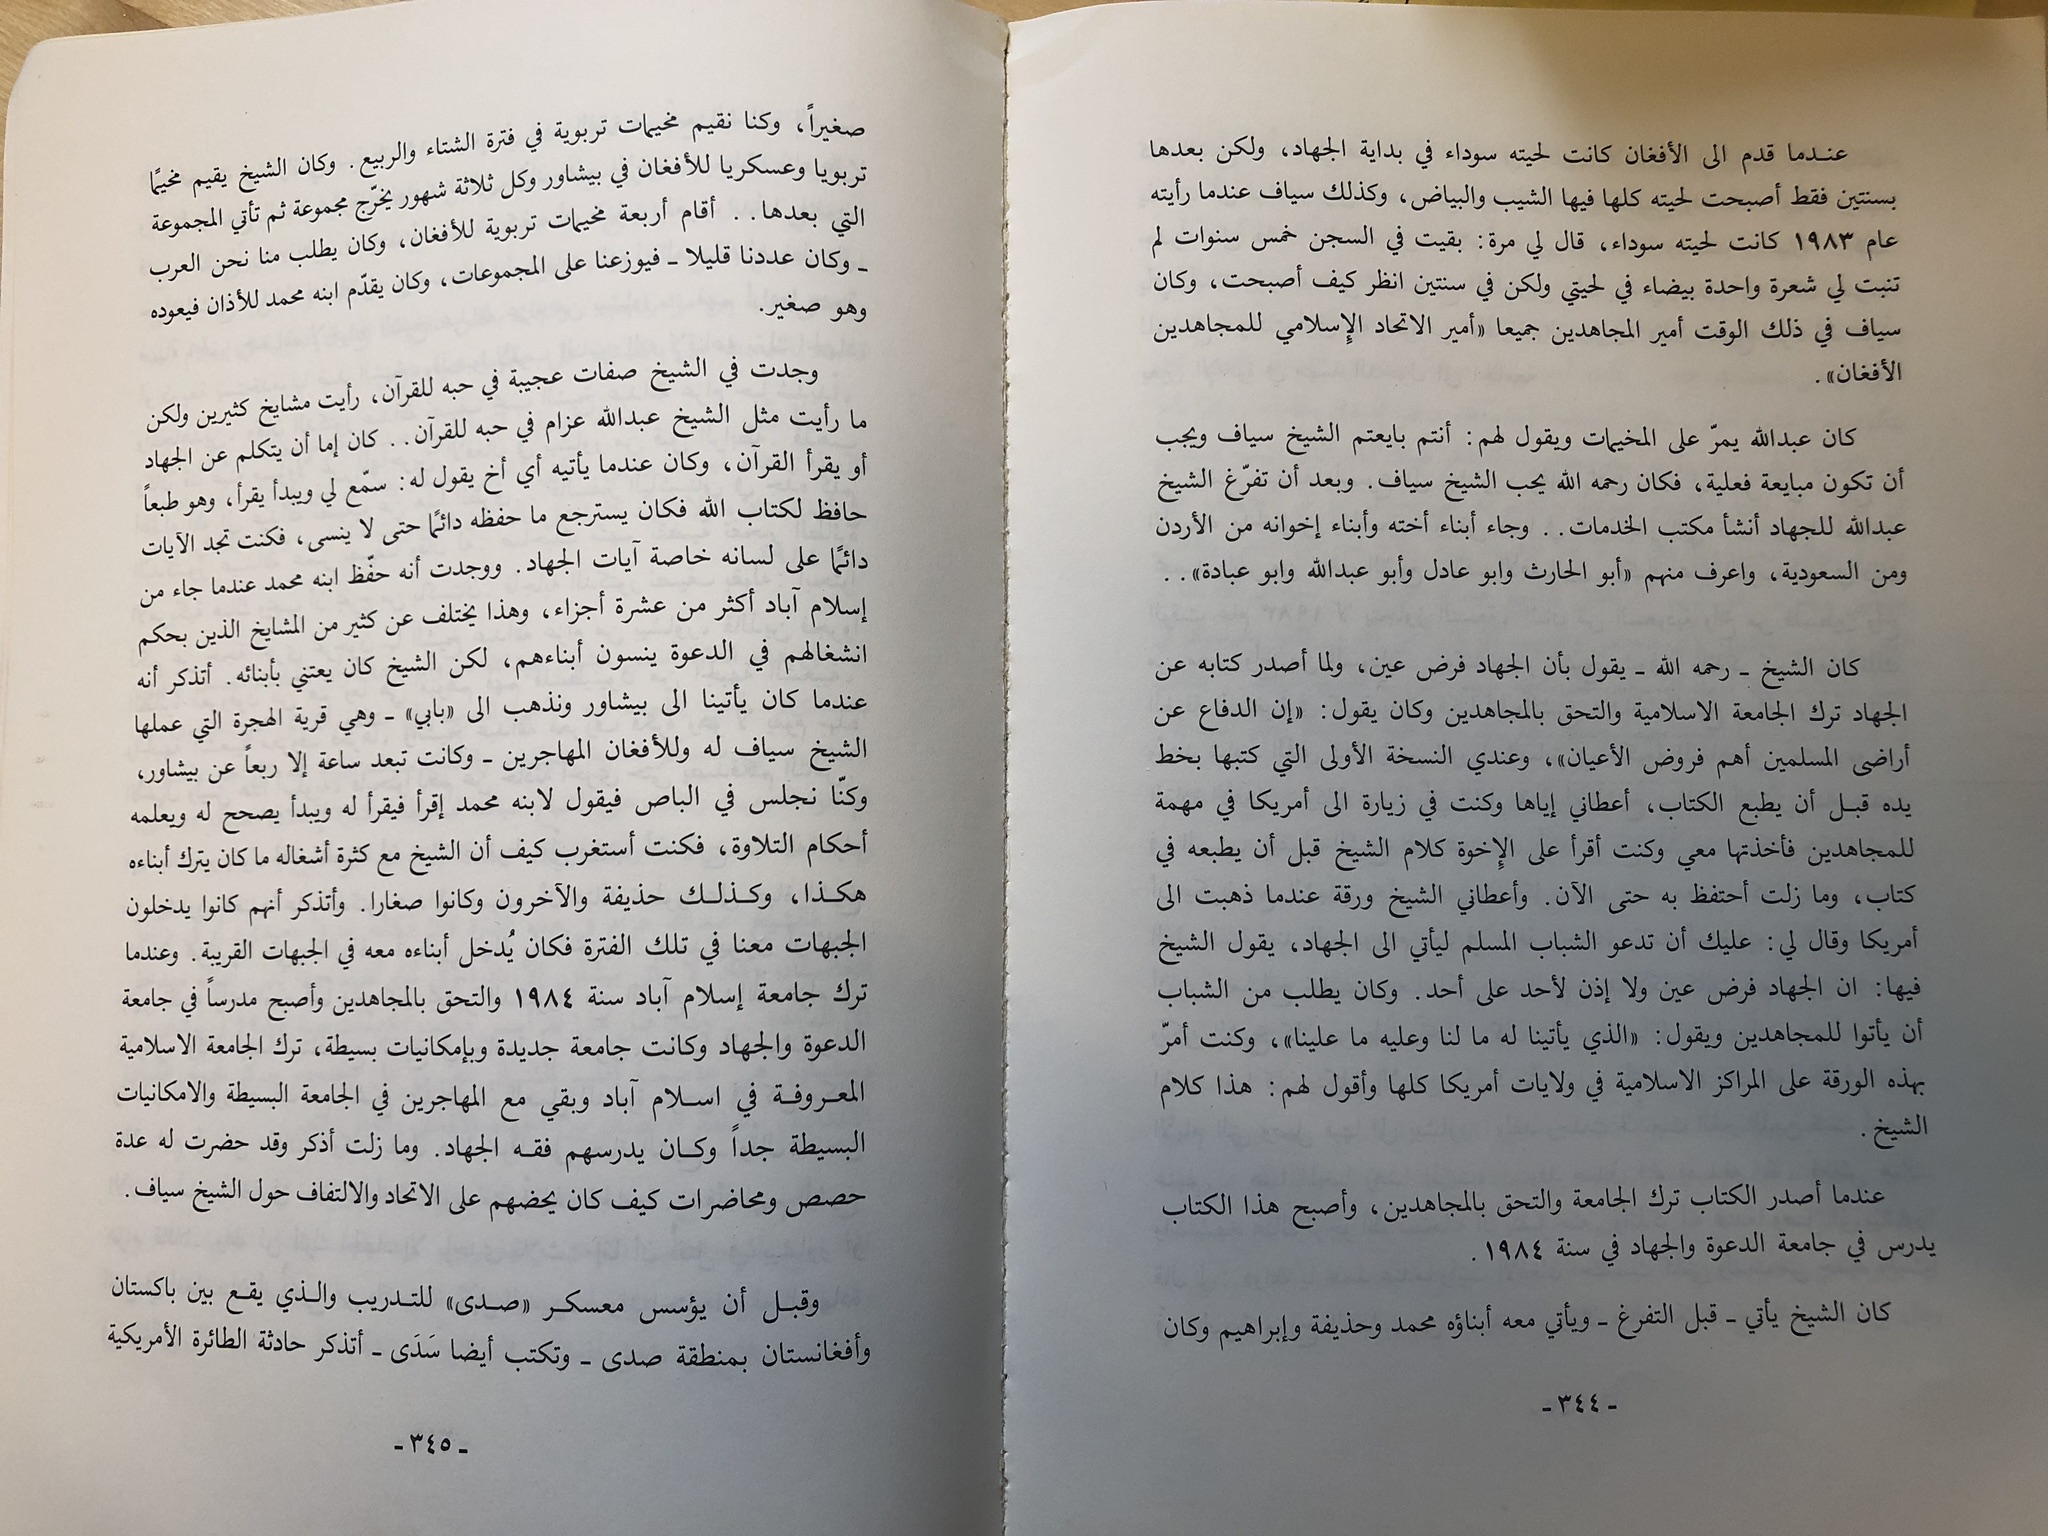 عندما قدم الى الأفغان كانت لحيته سوداء في بداية الجهاد، ولكن بعدها
بسنتين فقط أصبحت لحيته كلها فيها الشيب والبياض، وكذلك سياف عندما رأيته
عام ١٩٨٣ كانت لحيته سوداء، قال لي مرة: بقيت في السجن خمس سنوات لم
تنبت لي شعرة واحدة بيضاء في لحيتي ولكن في سنتين انظر كيف أصبحت، وكان
سياف في ذلك الوقت أمير المجاهدين جميعا «أمير الاتحاد الإِسلامي للمجاهدين
الأفغان».
كان عبدالله يمرّ على المخيمات ويقول لهم: أنتم بايعتم الشيخ سياف ويجب
أن تكون مبايعة فعلية، فكان رحمه الله يحب الشيخ سياف. وبعد أن تفرّغ الشيخ
عبدالله للجهاد أنشأ مكتب الخدمات.. وجاء أبناء أخته وأبناء إخوانه من الأردن
ومن السعودية، واعرف منهم «أبو الحارث وابو عادل وأبو عبدالله وابو عبادة»..
كان الشيخ ـ رحمه الله ـ يقول بأن الجهاد فرض عين، ولما أصدر كتابه عن
الجهاد ترك الجامعة الاسلامية والتحق بالمجاهدين وكان يقول: «إن الدفاع عن
أراضى المسلمين أهم فروض الأعيان»، وعندي النسخة الأولى التي كتبها بخط
يده قبل أن يطبع الكتاب، أعطاني إياها وكنت في زيارة الى أمريكا في مهمة
للمجاهدين فأخذتها معي وكنت أقرأ على الإِخوة كلام الشيخ قبل أن يطبعه في
كتاب، وما زلت أحتفظ به حتى الآن. وأعطاني الشيخ ورقة عندما ذهبت الى
أمريكا وقال لي: عليك أن تدعو الشباب المسلم ليأتي الى الجهاد، يقول الشيخ
فيها: ان الجهاد فرض عين ولا إذن لأحد على أحد. وكان يطلب من الشباب
أن يأتوا للمجاهدين ويقول: «الذي يأتينا له ما لنا وعليه ما علينا»، وكنت أمرّ
بهذه الورقة على المراكز الاسلامية في ولايات أمريكا كلها وأقول لهم: هذا كلام
الشيخ.
عندما أصدر الكتاب ترك الجامعة والتحق بالمجاهدين، وأصبح هذا الكتاب
يدرس في جامعة الدعوة والجهاد في سنة ١٩٨٤.
كان الشيخ يأتي ـ قبل التفرغ ـ ويأتي معه أبناؤه محمد وحذيفة وإبراهيم وكان
ـ ٣٤٤ ـ
صغيراً، وكنا نقيم مخيمات تربوية في فترة الشتاء والربيع. وكان الشيخ يقيم مخيمًا
تربويا وعسكريا للأفغان في بيشاور وكل ثلاثة شهور يخرّج مجموعة ثم تأتي المجموعة
التي بعدها.. أقام أربعة مخيمات تربوية للأفغان، وكان يطلب منا نحن العرب
ـ وكان عددنا قليلا ـ فيوزعنا على المجموعات، وكان يقدّم ابنه محمد للأذان فيعوده
وهو صغير.
وجدت في الشيخ صفات عجيبة في حبه للقرآن، رأيت مشايخ كثيرين ولكن
ما رأيت مثل الشيخ عبدالله عزام في حبه للقرآن.. كان إما أن يتكلم عن الجهاد
أو يقرأ القرآن، وكان عندما يأتيه أي أخ يقول له: سمّع لي ويبدأ يقرأ، وهو طبعاً
حافظ لكتاب الله فكان يسترجع ما حفظه دائمًا حتى لا ينسى، فكنت تجد الآيات
دائمًا على لسانه خاصة آيات الجهاد. ووجدت أنه حفّظ ابنه محمد عندما جاء من
إسلام آباد أكثر من عشرة أجزاء، وهذا يختلف عن كثير من المشايخ الذين بحكم
انشغالهم في الدعوة ينسون أبناءهم، لكن الشيخ كان يعتني بأبنائه. أتذكر أنه
عندما كان يأتينا الى بيشاور ونذهب الى «بابي» ـ وهي قرية الهجرة التي عملها
الشيخ سياف له وللأفغان المهاجرين ـ وكانت تبعد ساعة إلا ربعاً عن بيشاور،
وكنّا نجلس في الباص فيقول لابنه محمد إقرأ فيقرأ له ويبدأ يصحح له ويعلمه
أحكام التلاوة، فكنت أستغرب كيف أن الشيخ مع كثرة أشغاله ما كان يترك أبناءه
هكذا، وكذلك حذيفة والآخرون وكانوا صغارا. وأتذكر أنهم كانوا يدخلون
الجبهات معنا في تلك الفترة فكان يُدخل أبناءه معه في الجبهات القريبة. وعندما
ترك جامعة إسلام آباد سنة ١٩٨٤ والتحق بالمجاهدين وأصبح مدرساً في جامعة
الدعوة والجهاد وكانت جامعة جديدة وبإمكانيات بسيطة، ترك الجامعة الاسلامية
المعروفة في اسلام آباد وبقي مع المهاجرين في الجامعة البسيطة والامكانيات
البسيطة جداً وكان يدرسهم فقه الجهاد. وما زلت أذكر وقد حضرت له عدة
حصص ومحاضرات كيف كان يحضهم على الاتحاد والالتفاف حول الشيخ سياف.
وقبل أن يؤسس معسكر «صدى» للتدريب والذي يقع بين باكستان
وأفغانستان بمنطقة صدى ـ وتكتب أيضا سَدَى ـ أتذكر حادثة الطائرة الأمريكية
ـ ٣٤٥ ـ